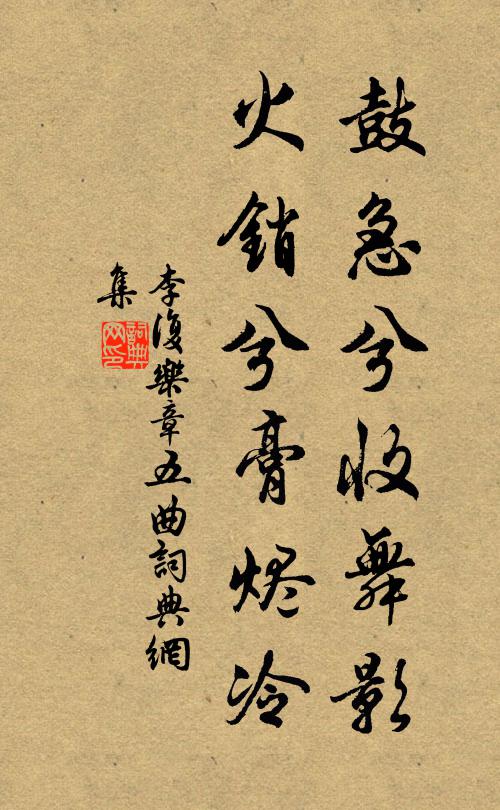 鼓急兮收舞影
火銷兮膏烬冷
李復樂章五曲詞典網
集
詞典
网印